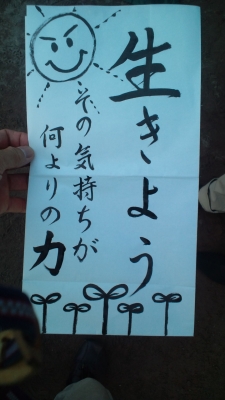 生きよう
その気持ちが
何よりの力